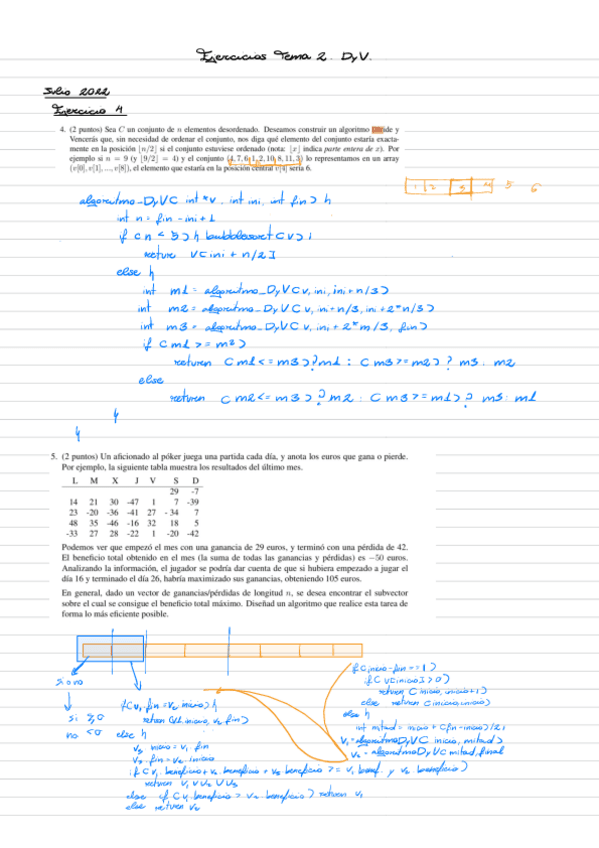 Ejercicios Tema 2. DyV.
Julio 2022
Ejercicio 4
4. (2 puntos) Sea C un conjunto de n elementos desordenado. Deseamos construir un algoritmo Divide y
Vencerás que, sin necesidad de ordenar el conjunto, nos diga qué elemento del conjunto estaría exacta-
mente en la posición ⌊n/2⌋ si el conjunto estuviese ordenado (nota: ⌊x⌋ indica parte entera de x). Por
ejemplo si n = 9 (y ⌊9/2⌋ = 4) y el conjunto (4, 7, 6, 1, 2, 10, 8, 11, 3) lo representamos en un array
(v[0], v[1], ..., v[8]), el elemento que estaría en la posición central v[4] sería 6.
1 2 3 4 5 6
algoritmo_DyV(int *v, int ini, int fin){
int n = fin - ini + 1
if (n < 3){ bubblesort(v);
return v[ini + n/2]
else {
int m1 = algoritmo_DyV(v, ini, ini + n/3)
int m2 = algoritmo_DyV(v, ini + n/3, ini + 2*n/3)
int m3 = algoritmo_DyV(v, ini + 2*n/3, fin)
if (m1 >= m2)
return (m1 <= m3)? m1 : (m3 >= m2)? m3 : m2
else
return (m2 <= m3)? m2 : (m3 >= m1)? m3 : m1
}
}
5. (2 puntos) Un aficionado al póker juega una partida cada día, y anota los euros que gana o pierde.
Por ejemplo, la siguiente tabla muestra los resultados del último mes.
L M X J V S D
29 -7
14 21 30 -47 1 7 -39
23 -20 -36 -41 27 -34 7
48 35 -46 -16 32 18 5
-33 27 28 -22 1 -20 -42
Podemos ver que empezó el mes con una ganancia de 29 euros, y terminó con una pérdida de 42.
El beneficio total obtenido en el mes (la suma de todas las ganancias y pérdidas) es −50 euros.
Analizando la información, el jugador se podría dar cuenta de que si hubiera empezado a jugar el
día 16 y terminado el día 26, habría maximizado sus ganancias, obteniendo 105 euros.
En general, dado un vector de ganancias/pérdidas de longitud n, se desea encontrar el subvector
sobre el cual se consigue el beneficio total máximo. Diseñad un algoritmo que realice esta tarea de
forma lo más eficiente posible.
if (inicio - fin == 1)
if (v[inicio] > 0)
return (inicio, inicio+1)
else return (inicio, inicio)
else {
int mitad = inicio + (fin - inicio)/2;
v1 = algoritmoDyV(inicio, mitad)
v2 = algoritmoDyV(mitad, final)
si o no
si ≥ 0
no < 0
if (v1.fin = v2.inicio){
return (v1.inicio, v2.fin)
else {
v3.inicio = v1.fin
v3.fin = v2.inicio
if (v1.beneficio + v2.beneficio + v3.beneficio >= v1.benef. y v2.beneficio)
return v1 ∪ v2 ∪ v3
else if (v1.beneficio > v2.beneficio) return v1
else return v2